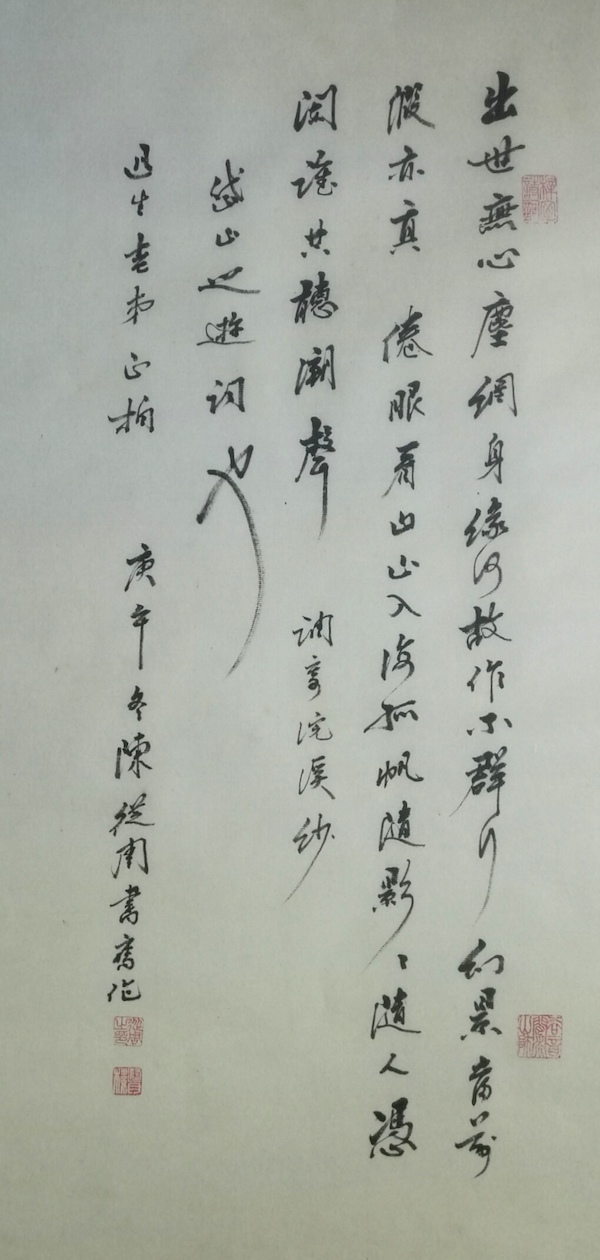 出世無心塵網身緣何故作不群行幻景當前
假亦真倦眼看山山入海孤帆隨影〻隨人憑
闌誰共聽潮聲調寄浣溪紗
岱山之遊詞也
生老弟正拍庚午冬陳從周書舊作